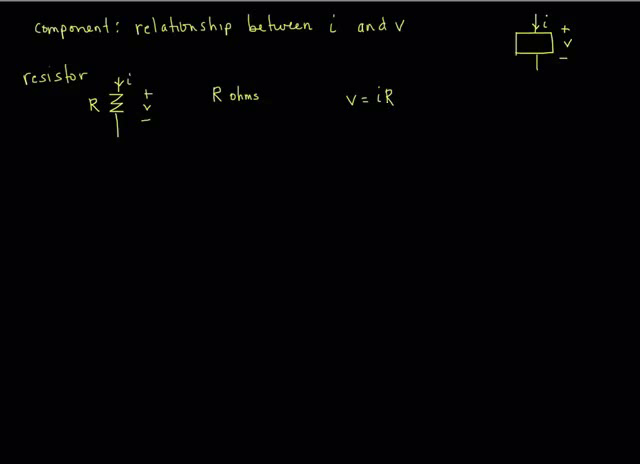 component: relationship between i and v
i
+
v
-
resistor
i
R
+
v
-
R ohms
v = iR